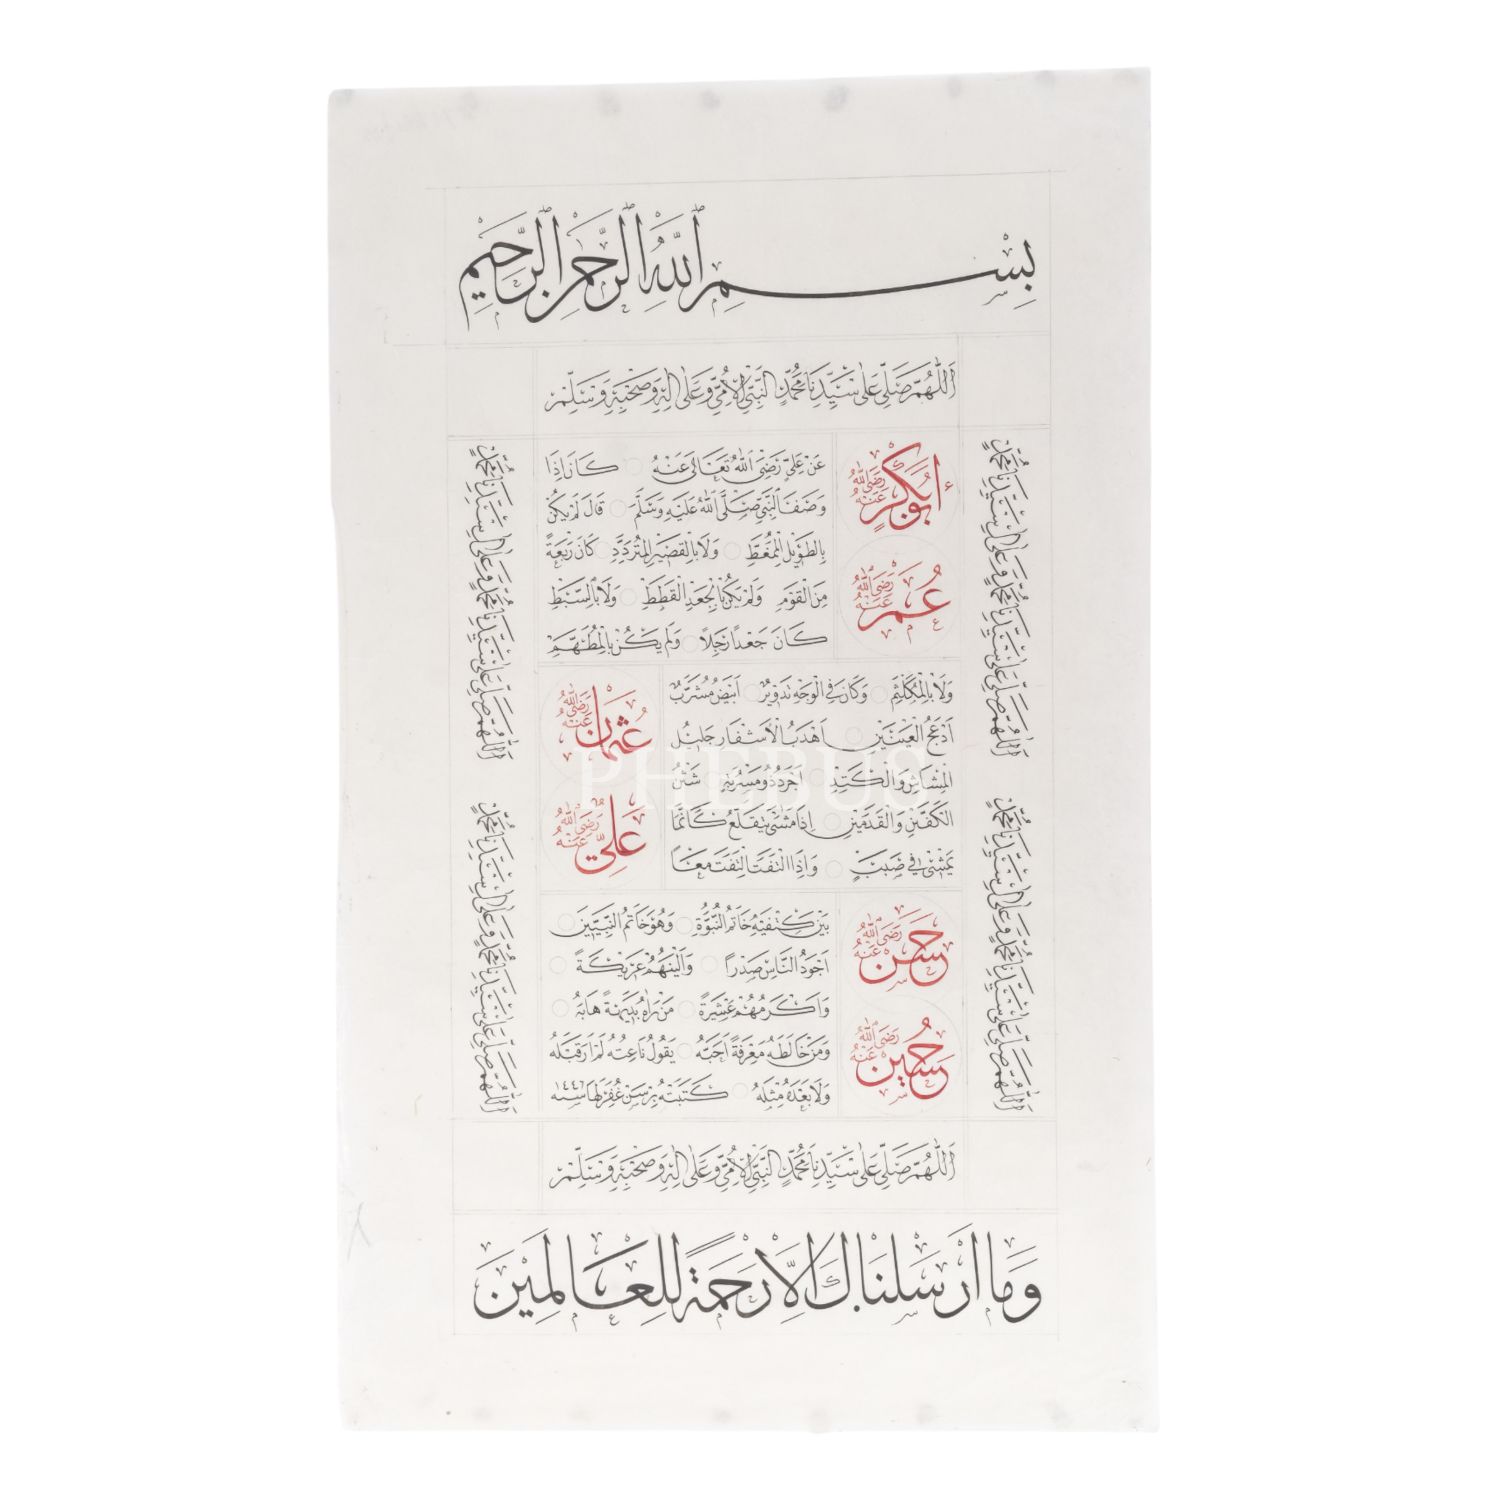 بِسْمِ ٱللَّهِ ٱلرَّحْمَٰنِ ٱلرَّحِيمِ
اَللّٰهُمَّ صَلِّ عَلٰى سَيِّدِنَا مُحَمَّدٍ النَّبِيِّ الْاُمِّيِّ وَعَلٰى اٰلِهٖ وَصَحْبِهٖ وَسَلِّمْ
اَللّٰهُمَّ صَلِّ عَلٰى سَيِّدِنَا مُحَمَّدٍ وَعَلٰى اٰلِ سَيِّدِنَا مُحَمَّدٍ
اَللّٰهُمَّ صَلِّ عَلٰى سَيِّدِنَا مُحَمَّدٍ وَعَلٰى اٰلِ سَيِّدِنَا مُحَمَّدٍ
اَبُو بَكْرٍ رَضِيَ اللهُ عَنْهُ
عُمَرْ رَضِيَ اللهُ عَنْهُ
عَنْ عَلِيٍّ رَضِيَ اللهُ تَعَالٰى عَنْهُ كَانَ اِذَا
وَصَفَ النَّبِيَّ صَلَّى اللهُ عَلَيْهِ وَسَلَّمَ قَالَ لَمْ يَكُنْ
بِالطَّوٖيلِ الْمُمَّغِطِ وَلَا بِالْقَصٖيرِ الْمُتَرَدِّدِ كَانَ رَبْعَةً
مِنَ الْقَوْمِ وَلَمْ يَكُنْ بِالْجَعْدِ الْقَطَطِ وَلَا بِالسَّبْطِ
كَانَ جَعْدًا رَجِلًا وَلَمْ يَكُنْ بِالْمُطَهَّمِ
وَلَا بِالْمُكَلْثَمِ وَكَانَ فِي الْوَجْهِ تَدْوٖيرٌ اَبْيَضُ مُشْرَبٌ
اَدْعَجُ الْعَيْنَيْنِ اَهْدَبُ الْاَشْفَارِ جَلٖيلُ
الْمُشَاشِ وَالْكَتَدِ اَجْرَدُ ذُو مَسْرُبَةٍ شَثْنُ
الْكَفَّيْنِ وَالْقَدَمَيْنِ اِذَا مَشٰى يَتَقَلَّعُ كَاَنَّمَا
يَمْشٖي فٖي صَبَبٍ وَاِذَا الْتَفَتَ الْتَفَتَ مَعًا
عُثْمَان رَضِيَ اللهُ عَنْهُ
عَلِيّ رَضِيَ اللهُ عَنْهُ
حَسَنْ رَضِيَ اللهُ عَنْهُ
حُسَيْن رَضِيَ اللهُ عَنْهُ
بَيْنَ كَتِفَيْهِ خَاتَمُ النُّبُوَّةِ وَهُوَ خَاتَمُ النَّبِيّٖينَ
اَجْوَدُ النَّاسِ صَدْرًا وَاَلْيَنُهُمْ عَرٖيكَةً
وَاَكْرَمُهُمْ عَشٖيرَةً مَنْ رَاٰهُ بَدٖيهَةً هَابَهُ
وَمَنْ خَالَطَهُ مَعْرِفَةً اَحَبَّهُ يَقُولُ نَاعِتُهُ لَمْ اَرَ قَبْلَهُ
وَلَا بَعْدَهُ مِثْلَهُ كَتَبَتْهُ بِرسن غُفِرَ لَهَا سنه ١٤٤٦
اَللّٰهُمَّ صَلِّ عَلٰى سَيِّدِنَا مُحَمَّدٍ وَعَلٰى اٰلِ سَيِّدِنَا مُحَمَّدٍ
اَللّٰهُمَّ صَلِّ عَلٰى سَيِّدِنَا مُحَمَّدٍ وَعَلٰى اٰلِ سَيِّدِنَا مُحَمَّدٍ
اَللّٰهُمَّ صَلِّ عَلٰى سَيِّدِنَا مُحَمَّدٍ النَّبِيِّ الْاُمِّيِّ وَعَلٰى اٰلِهٖ وَصَحْبِهٖ وَسَلِّمْ
وَمَا اَرْسَلْنَاكَ اِلَّا رَحْمَةً لِلْعَالَمٖينَ
PHEBUS